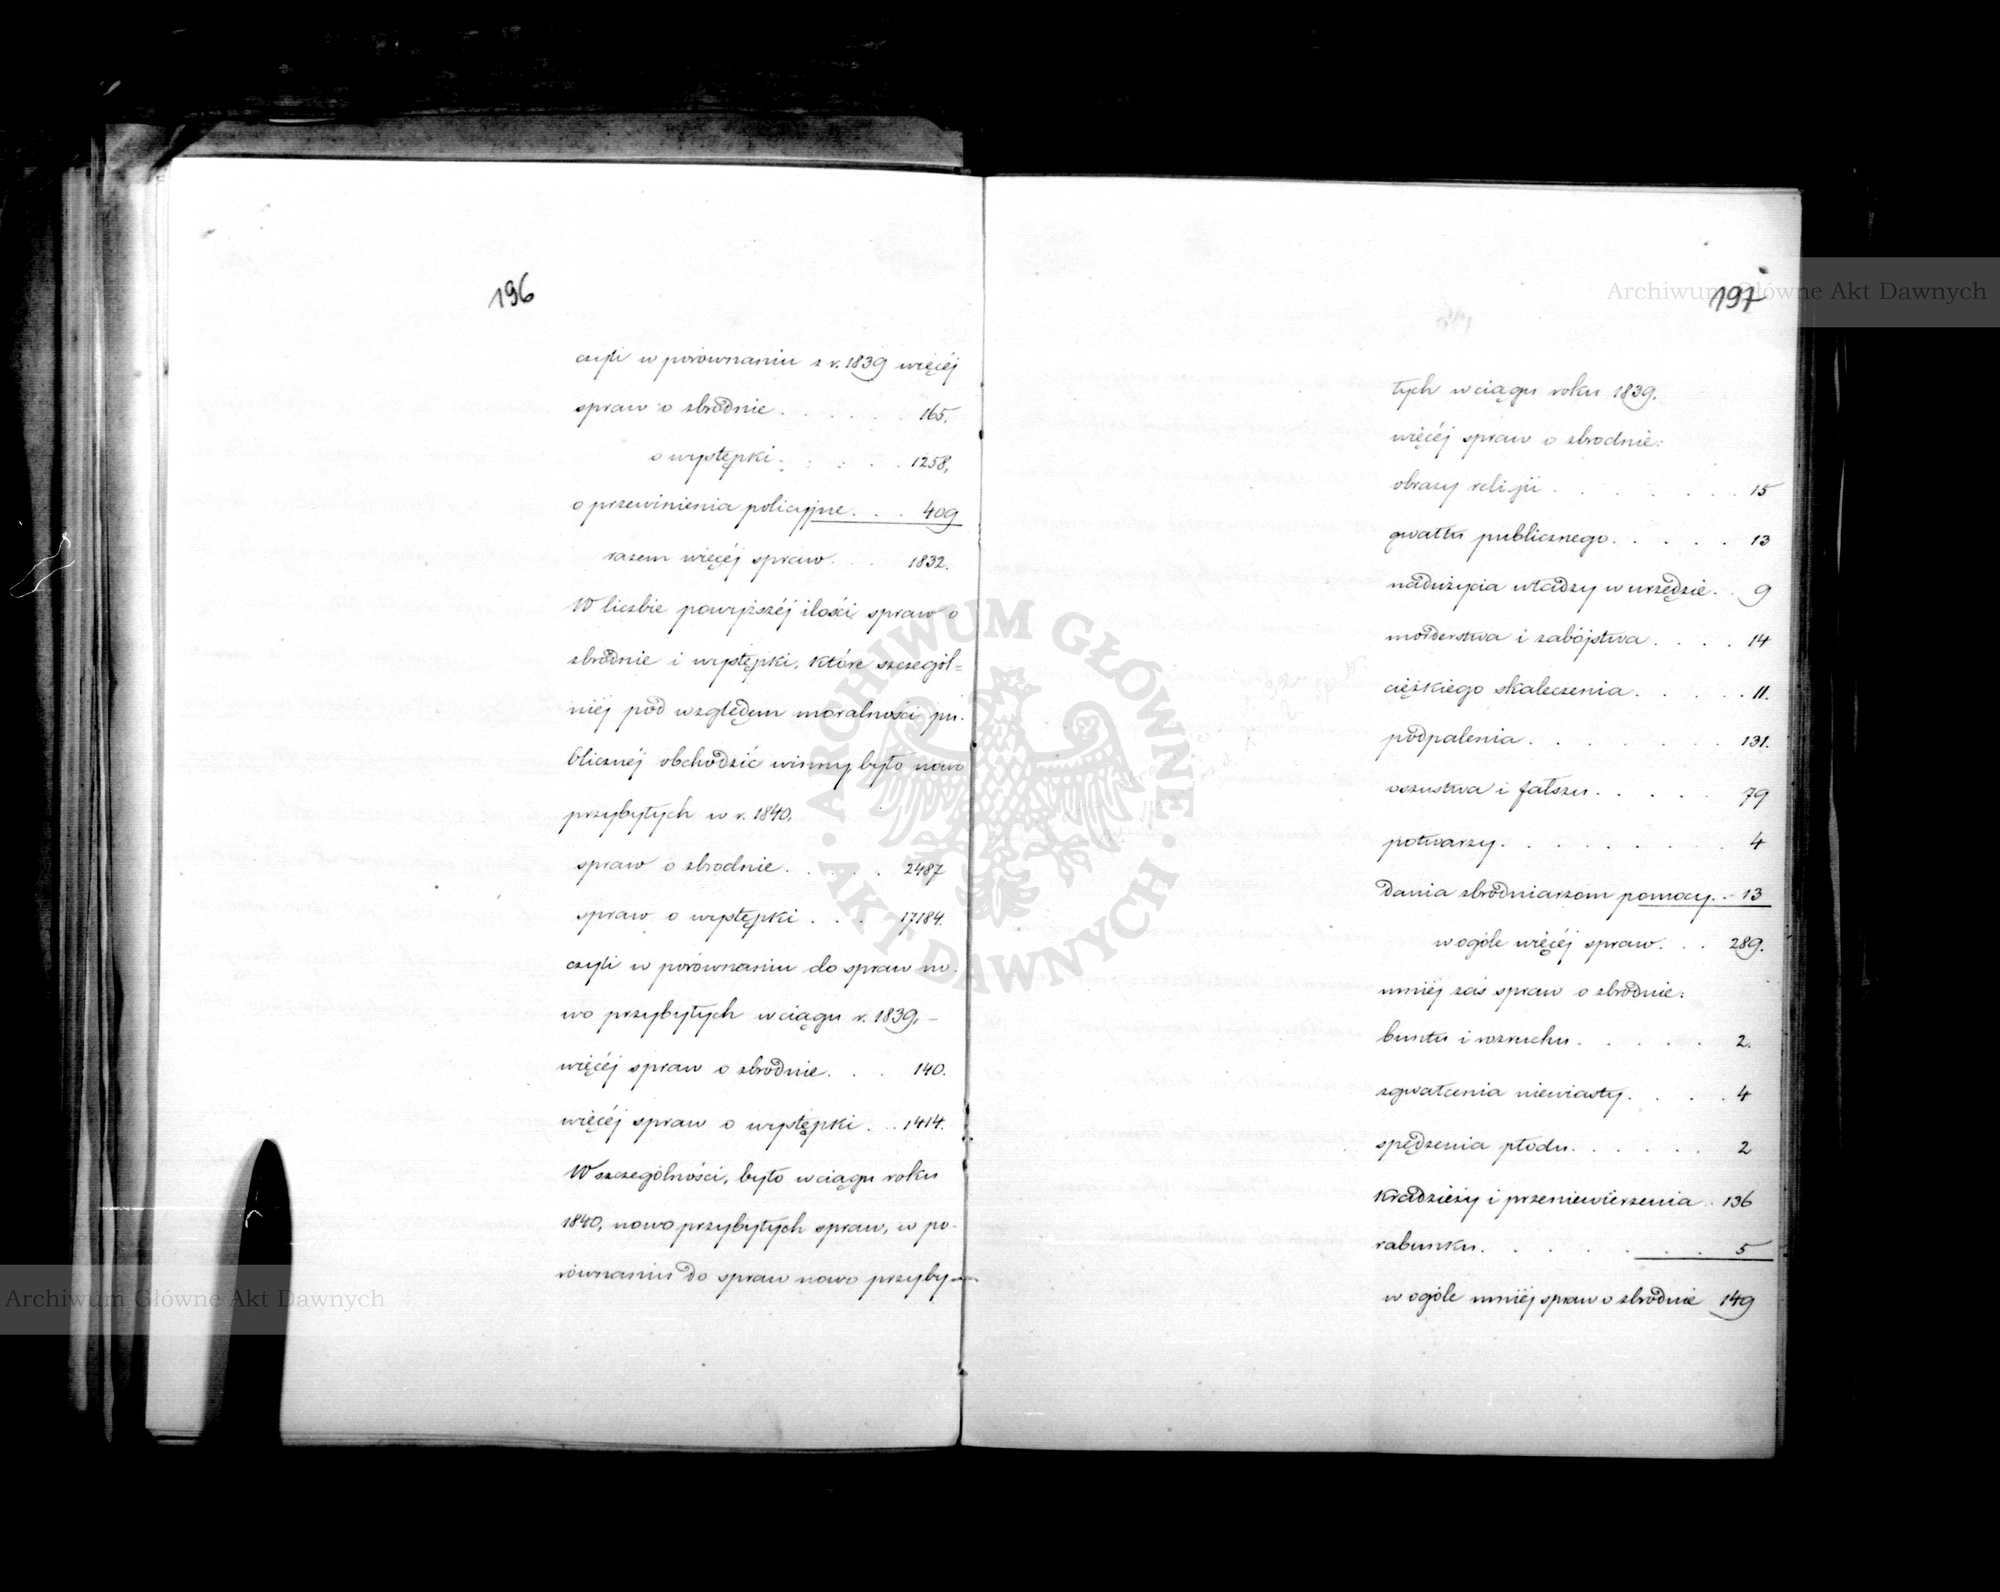 196
czyli w porównaniu z r. 1839 więcéj
spraw o zbrodnie . . . . . . 165.
o występki . . . . . 1258,
o przewinienia policyjne . . . 409
razem więcéj spraw . . . 1832.
W liczbie powyższéj ilości spraw o
zbrodnie i występki, które szczegól=
niéj pod względem moralności pu-
blicznéj obchodzić winny, było nowo
przybyłych w r. 1840,
spraw o zbrodnie . . . . . 2487
spraw o występki . . . 17184.
czyli w porównaniu do spraw no-
wo przybyłych w ciągu r. 1839, –
więcéj spraw o zbrodnie . . . 140.
więcéj spraw o występki . . . 1414.
W szczególności, było w ciągu roku
1840, nowo przybyłych spraw, w po-
równaniu do spraw nowo przyby-
197
łych w ciągu roku 1839.
więcéj spraw o zbrodnie:
obrazy religii . . . . . . . . 15
gwałtu publicznego . . . . . 13
nadużycia władzy w urzędzie . . 9
morderstwa i zabójstwa . . . . 14
ciężkiego skaleczenia . . . . . 11.
podpalenia . . . . . . . . 131.
oszustwa i fałszu . . . . . 79
potwarzy . . . . . . . . . 4
dania zbrodniarzom pomocy . . 13
w ogóle więcéj spraw . . . 289.
mniéj zaś spraw o zbrodnie:
buntu i rozruchu . . . . . 2.
zgwałcenia niewiasty . . . . 4
spędzenia płodu . . . . . . 2
kradzieży i przeniewierzenia . . 136
rabunku . . . . . . . 5
w ogóle mniéj spraw o zbrodnie 149
Archiwum Główne Akt Dawnych
ARCHIWUM GŁÓWNE
AKT DAWNYCH
Archiwum Główne Akt Dawnych